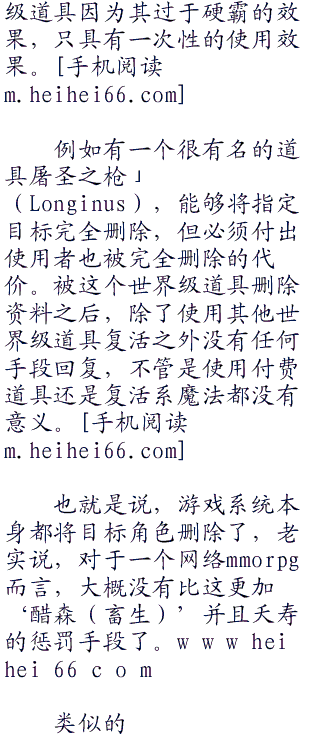 级道具因为其过于硬霸的效
果，只具有一次性的使用效
果。[手机阅读
m.heihei66.com]
例如有一个很有名的道
具屠圣之枪」
（Longinus），能够将指定
目标完全删除，但必须付出
使用者也被完全删除的代
价。被这个世界级道具删除
资料之后，除了使用其他世
界级道具复活之外没有任何
手段回复，不管是使用付费
道具还是复活系魔法都没有
意义。[手机阅读
m.heihei66.com]
也就是说，游戏系统本
身都将目标角色删除了，老
实说，对于一个网络mmorpg
而言，大概没有比这更加
‘醋森（畜生）’并且夭寿
的惩罚手段了。w w w hei
hei 66 c o m
类似的